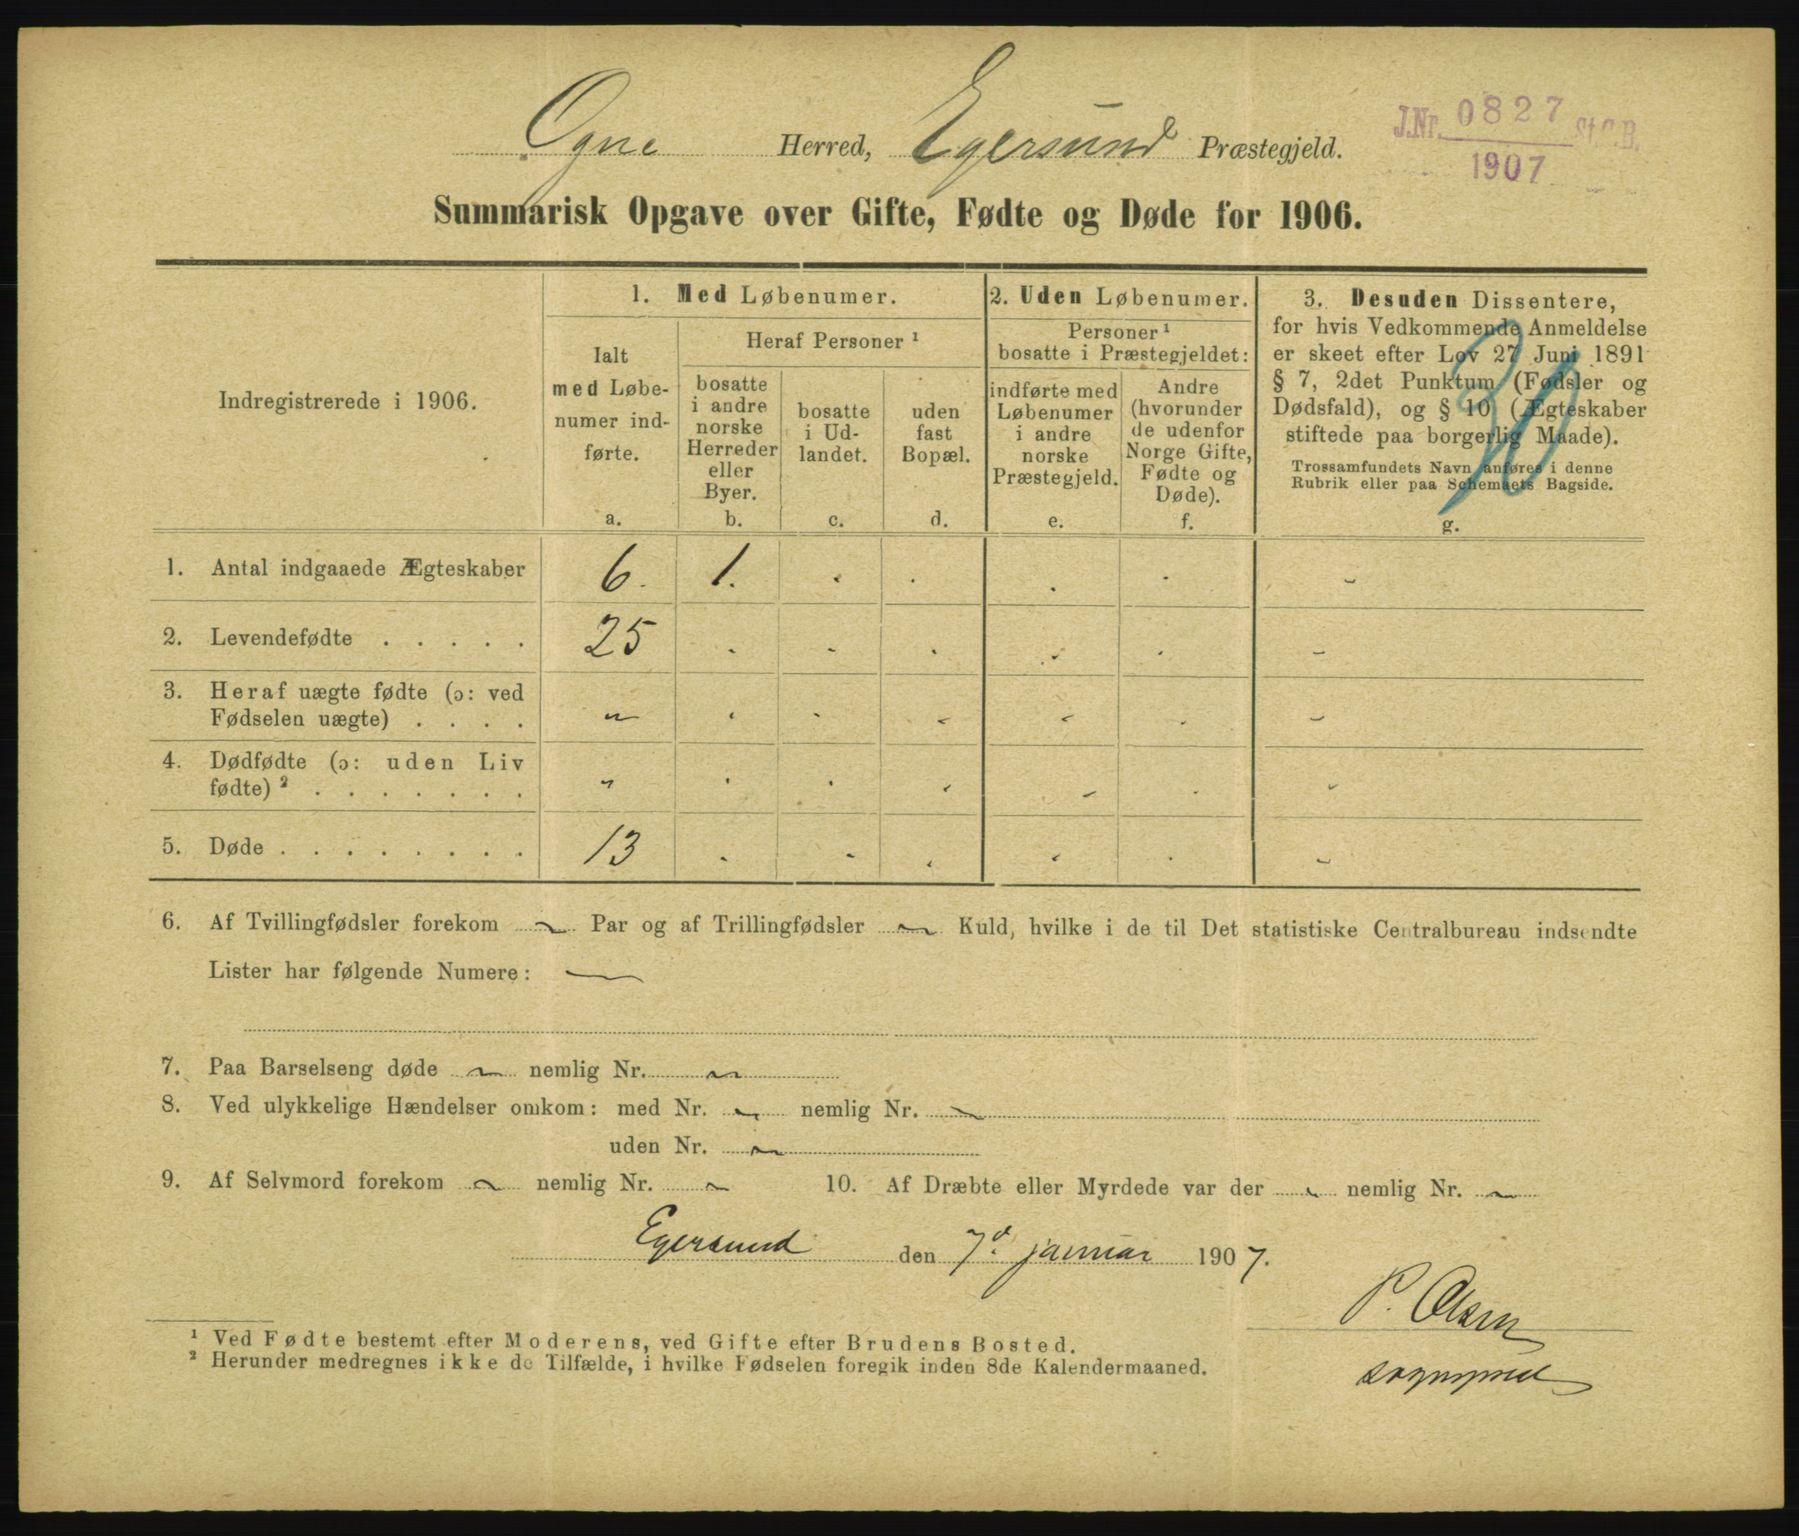 Ogne Herred, Egersund Præstegjeld.
J.Nr. 0827 St.C.B.
1907
Summarisk Opgave over Gifte, Fødte og Døde for 1906.
Indregistrerede i 1906.
1. Med Løbenumer.
Ialt
med Løbe-
numer ind-
førte.
a.
Heraf Personer ¹
bosatte
i andre
norske
Herreder
eller
Byer.
b.
bosatte
i Ud-
landet.
c.
uden
fast
Bopæl.
d.
2. Uden Løbenumer.
Personer ¹
bosatte i Præstegjeldet:
indførte med
Løbenumer
i andre
norske
Præstegjeld.
e.
Andre
(hvorunder
de udenfor
Norge Gifte,
Fødte og
Døde).
f.
3. Desuden Dissentere,
for hvis Vedkommende Anmeldelse
er skeet efter Lov 27 Juni 1891
§ 7, 2det Punktum (Fødsler og
Dødsfald), og § 10 (Ægteskaber
stiftede paa borgerlig Maade).
Trossamfundets Navn anføres i denne
Rubrik eller paa Schemaets Bagside.
g.
1. Antal indgaaede Ægteskaber 6. 1. . . . . -
2. Levendefødte . . . . . 25 . . . . . -
3. Heraf uægte fødte (ɔ: ved
Fødselen uægte) . . . . " . . . . . -
4. Dødfødte (ɔ: uden Liv
fødte) ² . . . . . . . " . . . . . -
5. Døde . . . . . . . . 13 . . . . . -
6. Af Tvillingfødsler forekom ~ Par og af Trillingfødsler ~ Kuld, hvilke i de til Det statistiske Centralbureau indsendte
Lister har følgende Numere: —
7. Paa Barselseng døde ~ nemlig Nr. ~
8. Ved ulykkelige Hændelser omkom: med Nr. ~ nemlig Nr. ~
uden Nr. ~
9. Af Selvmord forekom ~ nemlig Nr. ~ 10. Af Dræbte eller Myrdede var der ~ nemlig Nr. ~
Egersund den 7d. januar 1907.
P. Olsen
sognepræst
¹ Ved Fødte bestemt efter Moderens, ved Gifte efter Brudens Bosted.
² Herunder medregnes ikke de Tilfælde, i hvilke Fødselen foregik inden 8de Kalendermaaned.